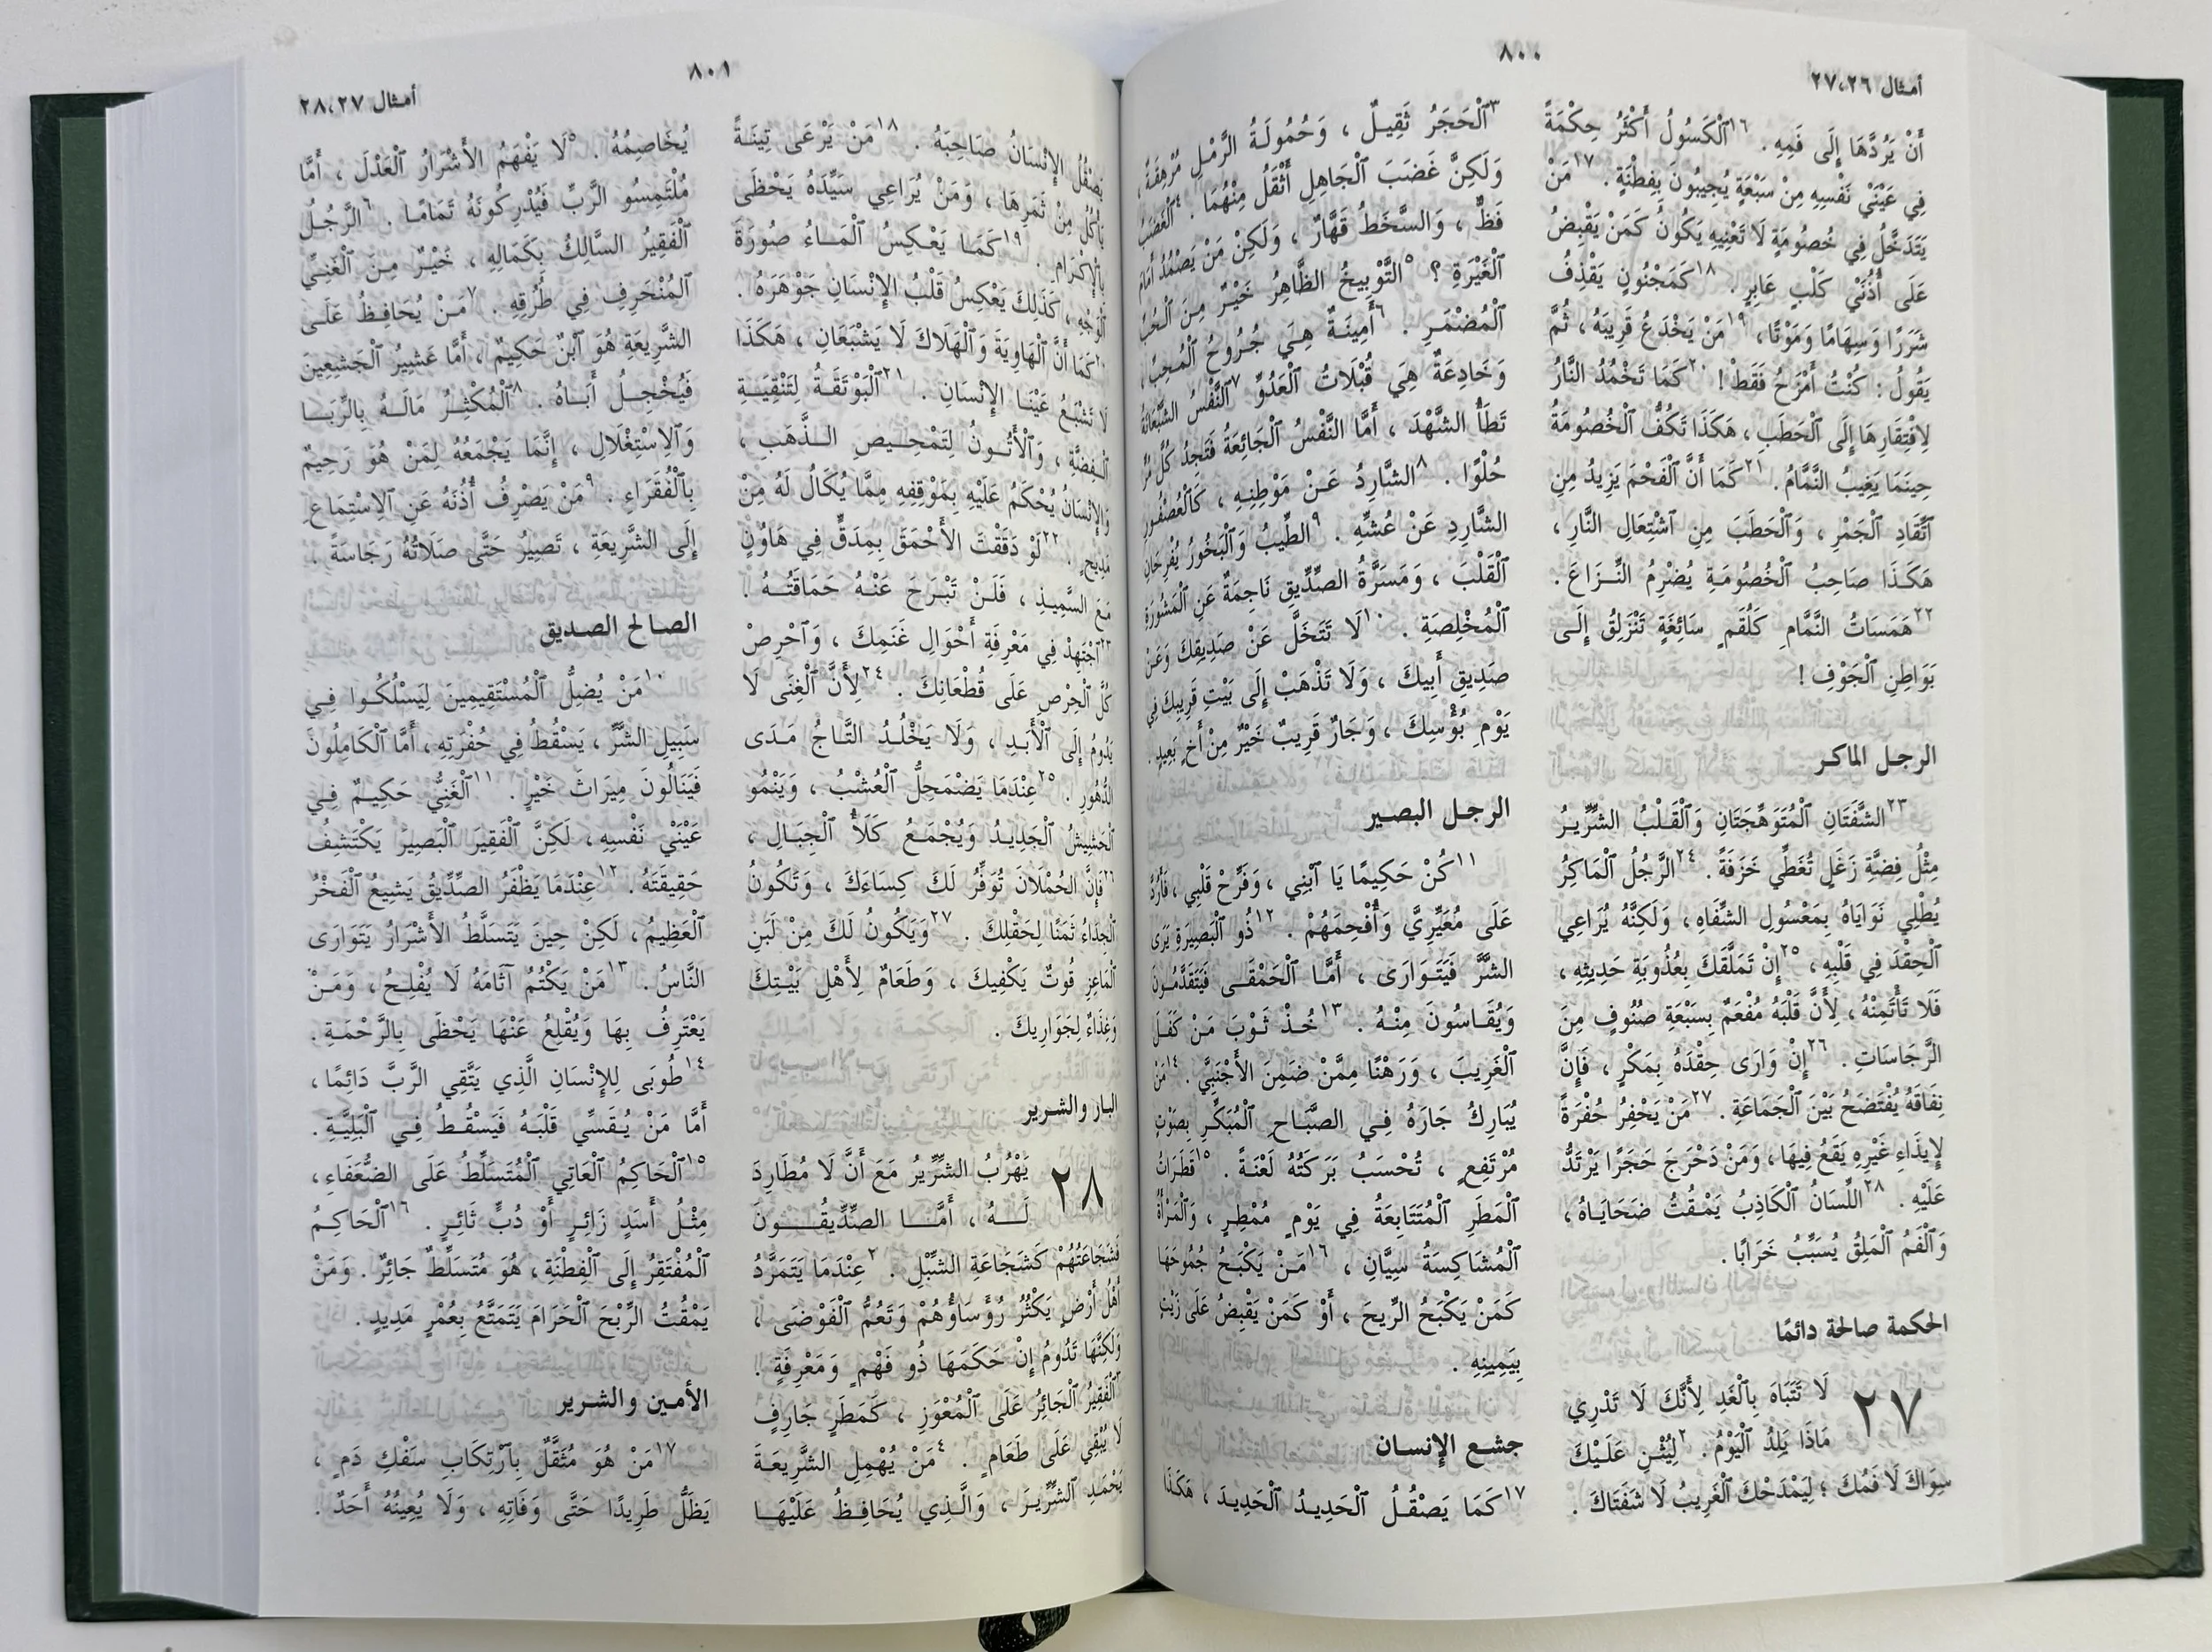 ٨٠٠
أمثال ٢٧،٢٦
أَنْ يَرُدَّهَا إِلَى فَمِهِ . ١٦ٱلْكَسُولُ أَكْثَرُ حِكْمَةً
فِي عَيْنَيْ نَفْسِهِ مِنْ سَبْعَةٍ يُجِيبُونَ بِفِطْنَةٍ . ١٧مَنْ
يَتَدَخَّلُ فِي خُصُومَةٍ لَا تَعْنِيهِ يَكُونُ كَمَنْ يَقْبِضُ
عَلَى أُذُنَيْ كَلْبٍ عَابِرٍ . ١٨كَمَجْنُونٍ يَقْذِفُ
شَرَرًا وَسِهَامًا وَمَوْتًا، ١٩مَنْ يَخْدَعُ قَرِيبَهُ ، ثُمَّ
يَقُولُ : كُنْتُ أَمْزَحُ فَقَطْ ! ٢٠كَمَا تَخْمُدُ النَّارُ
لِافْتِقَارِهَا إِلَى ٱلْحَطَبِ ، هَكَذَا تَكُفُّ ٱلْخُصُومَةُ
حِينَمَا يَغِيبُ النَّمَّامُ . ٢١كَمَا أَنَّ ٱلْفَحْمَ يَزِيدُ مِنِ
ٱتِّقَادِ ٱلْجَمْرِ ، وَٱلْحَطَبَ مِنِ ٱشْتِعَالِ النَّارِ ،
هَكَذَا صَاحِبُ ٱلْخُصُومَةِ يُضْرِمُ النِّزَاعَ .
٢٢هَمَسَاتُ النَّمَّامِ كَلُقَمٍ سَائِغَةٍ تَنْزَلِقُ إِلَى
بَوَاطِنِ ٱلْجَوْفِ !
الرجل الماكر
٢٣الشَّفَتَانِ ٱلْمُتَوَهِّجَتَانِ وَٱلْقَلْبُ الشِّرِّيرُ
مِثْلُ فِضَّةِ زَغَلٍ تُغَطِّي خَزَفَةً . ٢٤الرَّجُلُ ٱلْمَاكِرُ
يُطْلِي نَوَايَاهُ بِمَعْسُولِ الشِّفَاهِ ، وَلَكِنَّهُ يُرَاعِي
ٱلْحِقْدَ فِي قَلْبِهِ ، ٢٥إِنْ تَمَلَّقَكَ بِعُذُوبَةِ حَدِيثِهِ ،
فَلَا تَأْتَمِنْهُ ، لِأَنَّ قَلْبَهُ مُفْعَمٌ بِسَبْعَةِ صُنُوفٍ مِنَ
الرَّجَاسَاتِ . ٢٦إِنْ وَارَى حِقْدَهُ بِمَكْرٍ ، فَإِنَّ
نِفَاقَهُ يُفْتَضَحُ بَيْنَ ٱلْجَمَاعَةِ . ٢٧مَنْ يَحْفِرُ حُفْرَةً
لِإِيذَاءِ غَيْرِهِ يَقَعُ فِيهَا ، وَمَنْ دَحْرَجَ حَجَرًا يَرْتَدُّ
عَلَيْهِ . ٢٨اللِّسَانُ ٱلْكَاذِبُ يَمْقُتُ ضَحَايَاهُ ،
وَٱلْفَمُ ٱلْمَلِقُ يُسَبِّبُ خَرَابًا .
الحكمة صالحة دائمًا
٢٧ لَا تَتَبَاهَ بِٱلْغَدِ لِأَنَّكَ لَا تَدْرِي
مَاذَا يَلِدُ ٱلْيَوْمُ . ٢لِيُثْنِ عَلَيْكَ
سِوَاكَ لَا فَمُكَ ؛ لِيَمْدَحْكَ ٱلْغَرِيبُ لَا شَفَتَاكَ .
٣ٱلْحَجَرُ ثَقِيلٌ ، وَحُمُولَةُ الرَّمْلِ مُرْهِقَةٌ ،
وَلَكِنَّ غَضَبَ ٱلْجَاهِلِ أَثْقَلُ مِنْهُمَا . ٤ٱلْغَضَبُ
فَظٌّ ، وَالسَّخَطُ قَهَّارٌ ، وَلَكِنْ مَنْ يَصْمُدُ أَمَامَ
ٱلْغَيْرَةِ ؟ ٥التَّوْبِيخُ الظَّاهِرُ خَيْرٌ مِنَ ٱلْحُبِّ
ٱلْمُضْمَرِ . ٦أَمِينَةٌ هِيَ جُرُوحُ ٱلْمُحِبِّ ،
وَخَادِعَةٌ هِيَ قُبْلَاتُ ٱلْعَدُوِّ ٧ٱلنَّفْسُ الشَّبْعَانَةُ
تَطَأُ الشَّهْدَ ، أَمَّا النَّفْسُ ٱلْجَائِعَةُ فَتَجِدُ كُلَّ مُرٍّ
حُلْوًا . ٨الشَّارِدُ عَنْ مَوْطِنِهِ ، كَٱلْعُصْفُورِ
الشَّارِدِ عَنْ عُشِّهِ . ٩الطِّيبُ وَٱلْبَخُورُ يُفْرِحَانِ
ٱلْقَلْبَ ، وَمَسَرَّةُ الصِّدِّيقِ نَاجِمَةٌ عَنِ ٱلْمَشُورَةِ
ٱلْمُخْلِصَةِ . ١٠لَا تَتَخَلَّ عَنْ صَدِيقِكَ وَعَنْ
صَدِيقِ أَبِيكَ ، وَلَا تَذْهَبْ إِلَى بَيْتِ قَرِيبِكَ فِي
يَوْمِ بُؤْسِكَ ، وَجَارٌ قَرِيبٌ خَيْرٌ مِنْ أَخٍ بَعِيدٍ .
الرجل البصير
١١كُنْ حَكِيمًا يَا ٱبْنِي ، وَفَرِّحْ قَلْبِي ، فَأَرُدَّ
عَلَى مُعَيِّرِيَّ وَأُفْحِمَهُمْ . ١٢ذُو ٱلْبَصِيرَةِ يَرَى
الشَّرَّ فَيَتَوَارَى ، أَمَّا ٱلْحَمْقَى فَيَتَقَدَّمُونَ
وَيُقَاسُونَ مِنْهُ . ١٣خُذْ ثَوْبَ مَنْ كَفَلَ
ٱلْغَرِيبَ ، وَرَهْنًا مِمَّنْ ضَمِنَ الأَجْنَبِيَّ . ١٤مَنْ
يُبَارِكُ جَارَهُ فِي الصَّبَاحِ ٱلْمُبَكِّرِ بِصَوْتٍ
مُرْتَفِعٍ ، تُحْسَبُ بَرَكَتُهُ لَعْنَةً . ١٥قَطَرَاتُ
ٱلْمَطَرِ ٱلْمُتَتَابِعَةُ فِي يَوْمٍ مُمْطِرٍ ، وَٱلْمَرْأَةُ
ٱلْمُشَاكِسَةُ سِيَّانِ ، ١٦مَنْ يَكْبَحُ جُمُوحَهَا
كَمَنْ يَكْبَحُ الرِّيحَ ، أَوْ كَمَنْ يَقْبِضُ عَلَى زَيْتٍ
بِيَمِينِهِ .
جشع الإنسان
١٧كَمَا يَصْقُلُ ٱلْحَدِيدُ ٱلْحَدِيدَ ، هَكَذَا
٨٠١
أمثال ٢٨،٢٧
يَصْقُلُ الإِنْسَانُ صَاحِبَهُ . ١٨مَنْ يَرْعَى تِينَةً
يَأْكُلُ مِنْ ثَمَرِهَا ، وَمَنْ يُرَاعِي سَيِّدَهُ يَحْظَى
بِالإِكْرَامِ . ١٩كَمَا يَعْكِسُ ٱلْمَاءُ صُورَةَ
ٱلْوَجْهِ ، كَذَلِكَ يَعْكِسُ قَلْبُ الإِنْسَانِ جَوْهَرَهُ .
٢٠كَمَا أَنَّ ٱلْهَاوِيَةَ وَٱلْهَلَاكَ لَا يَشْبَعَانِ ، هَكَذَا
لَا تَشْبَعُ عَيْنَا الإِنْسَانِ . ٢١ٱلْبَوْتَقَةُ لِتَنْقِيَةِ
ٱلْفِضَّةِ ، وَٱلأَتُونُ لِتَمْحِيصِ الذَّهَبِ ،
وَالإِنْسَانُ يُحْكَمُ عَلَيْهِ بِمَوْقِفِهِ مِمَّا يُكَالُ لَهُ مِنْ
مَدِيحٍ . ٢٢لَوْ دَقَقْتَ الأَحْمَقَ بِمِدَقٍّ فِي هَاوُنٍ
مَعَ السَّمِيذِ ، فَلَنْ تَبْرَحَ عَنْهُ حَمَاقَتُهُ .
٢٣ٱجْتَهِدْ فِي مَعْرِفَةِ أَحْوَالِ غَنَمِكَ ، وَٱحْرِصْ
كُلَّ ٱلْحِرْصِ عَلَى قُطْعَانِكَ . ٢٤لِأَنَّ ٱلْغِنَى لَا
يَدُومُ إِلَى ٱلأَبَدِ ، وَلَا يَخْلُدُ التَّاجُ مَدَى
الدُّهُورِ . ٢٥عِنْدَمَا يَضْمَحِلُّ ٱلْعُشْبُ ، وَيَنْمُو
ٱلْحَشِيشُ ٱلْجَدِيدُ وَيُجْمَعُ كَلَأُ ٱلْجِبَالِ ،
٢٦فَإِنَّ ٱلْحُمْلَانَ تُوَفِّرُ لَكَ كِسَاءَكَ ، وَتَكُونُ
ٱلْجِدَاءُ ثَمَنًا لِحَقْلِكَ . ٢٧وَيَكُونُ لَكَ مِنْ لَبَنِ
ٱلْمَاعِزِ قُوتٌ يَكْفِيكَ ، وَطَعَامٌ لِأَهْلِ بَيْتِكَ
وَغِذَاءٌ لِجَوَارِيكَ .
البار والشرير
٢٨ يَهْرُبُ الشِّرِّيرُ مَعَ أَنَّ لَا مُطَارِدَ
لَهُ ، أَمَّا الصِّدِّيقُونَ
فَشَجَاعَتُهُمْ كَشَجَاعَةِ الشِّبْلِ . ٢عِنْدَمَا يَتَمَرَّدُ
أَهْلُ أَرْضٍ يَكْثُرُ رُؤَسَاؤُهُمْ وَتَعُمُّ ٱلْفَوْضَى ،
وَلَكِنَّهَا تَدُومُ إِنْ حَكَمَهَا ذُو فَهْمٍ وَمَعْرِفَةٍ .
ٱلْفَقِيرُ ٱلْجَائِرُ عَلَى ٱلْمُعْوَزِ ، كَمَطَرٍ جَارِفٍ
لَا يُبْقِي عَلَى طَعَامٍ . ٤مَنْ يُهْمِلِ الشَّرِيعَةَ
يَحْمَدِ ٱلشِّرِّيرَ ، وَالَّذِي يُحَافِظُ عَلَيْهَا
يُخَاصِمُهُ . ٥لَا يَفْهَمُ الأَشْرَارُ ٱلْعَدْلَ ، أَمَّا
مُلْتَمِسُو الرَّبِّ فَيُدْرِكُونَهُ تَمَامًا . ٦الرَّجُلُ
ٱلْفَقِيرُ السَّالِكُ بِكَمَالِهِ ، خَيْرٌ مِنَ ٱلْغَنِيِّ
ٱلْمُنْحَرِفِ فِي طُرُقِهِ . ٧مَنْ يُحَافِظُ عَلَى
الشَّرِيعَةِ هُوَ ٱبْنٌ حَكِيمٌ ، أَمَّا عَشِيرُ ٱلْجَشِعِينَ
فَيُخْجِلُ أَبَاهُ . ٨ٱلْمُكْثِرُ مَالَهُ بِالرِّبَا
وَٱلِاسْتِغْلَالِ ، إِنَّمَا يَجْمَعُهُ لِمَنْ هُوَ رَحِيمٌ
بِٱلْفُقَرَاءِ . ٩مَنْ يَصْرِفُ أُذُنَهُ عَنِ ٱلِاسْتِمَاعِ
إِلَى الشَّرِيعَةِ ، تَصِيرُ حَتَّى صَلَاتُهُ رَجَاسَةً .
الصالح الصديق
١٠مَنْ يُضِلُّ ٱلْمُسْتَقِيمِينَ لِيَسْلُكُوا فِي
سَبِيلِ الشَّرِّ ، يَسْقُطُ فِي حُفْرَتِهِ ، أَمَّا ٱلْكَامِلُونَ
فَيَنَالُونَ مِيرَاثَ خَيْرٍ . ١١ٱلْغَنِيُّ حَكِيمٌ فِي
عَيْنَيْ نَفْسِهِ ، لَكِنَّ ٱلْفَقِيرَ ٱلْبَصِيرَ يَكْتَشِفُ
حَقِيقَتَهُ . ١٢عِنْدَمَا يَظْفَرُ الصِّدِّيقُ يَشِيعُ ٱلْفَخْرُ
ٱلْعَظِيمُ ، لَكِنْ حِينَ يَتَسَلَّطُ الأَشْرَارُ يَتَوَارَى
النَّاسُ . ١٣مَنْ يَكْتُمُ آثَامَهُ لَا يُفْلِحُ ، وَمَنْ
يَعْتَرِفُ بِهَا وَيُقْلِعُ عَنْهَا يَحْظَى بِالرَّحْمَةِ .
١٤طُوبَى لِلإِنْسَانِ الَّذِي يَتَّقِي الرَّبَّ دَائِمًا ،
أَمَّا مَنْ يُقَسِّي قَلْبَهُ فَيَسْقُطُ فِي ٱلْبَلِيَّةِ .
١٥ٱلْحَاكِمُ ٱلْعَاتِي ٱلْمُتَسَلِّطُ عَلَى الضُّعَفَاءِ ،
مِثْلُ أَسَدٍ زَائِرٍ أَوْ دُبٍّ ثَائِرٍ . ١٦ٱلْحَاكِمُ
ٱلْمُفْتَقِرُ إِلَى ٱلْفِطْنَةِ ، هُوَ مُتَسَلِّطٌ جَائِرٌ . وَمَنْ
يَمْقُتُ الرِّبْحَ ٱلْحَرَامَ يَتَمَتَّعُ بِعُمْرٍ مَدِيدٍ .
الأمين والشرير
١٧مَنْ هُوَ مُثَقَّلٌ بِٱرْتِكَابِ سَفْكِ دَمٍ ،
يَظَلُّ طَرِيدًا حَتَّى وَفَاتِهِ ، وَلَا يُعِينُهُ أَحَدٌ .